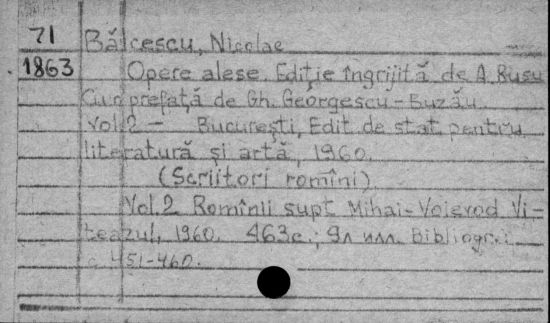 71 Bălcescu, Nicolae
1863 Opere alese. Ediţie îngrijită de A. Rusu
Cu prefaţă de Gh. Georgescu-Buzău.
Vol. 2 – Bucureşti, Edit. de stat pentru
literatură şi artă, 1960.
(Scriitori romîni).
Vol. 2 Romînii supt Mihai-Voievod Vi-
teazul, 1960. 463c.; 9л илл. Bibliogr.:
c. 451-460.